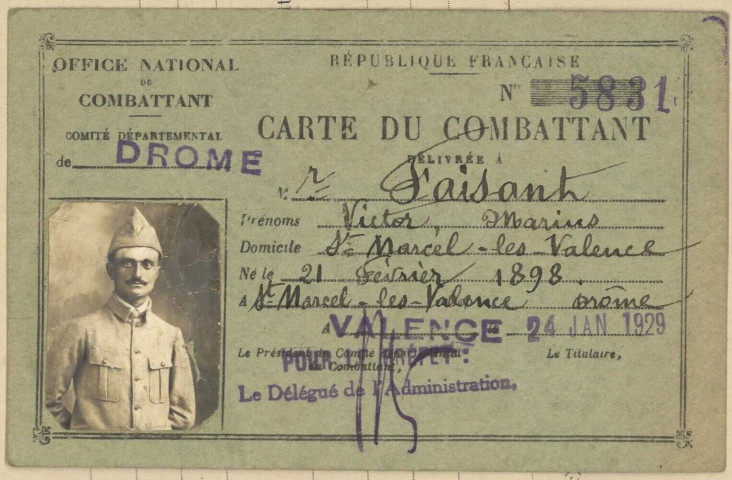 OFFICE NATIONAL
DU
COMBATTANT
COMITÉ DÉPARTEMENTAL
de DROME
RÉPUBLIQUE FRANÇAISE
N° 5831
CARTE DU COMBATTANT
DÉLIVRÉE À
M. r Faisant
Prénoms Victor, Marius
Domicile St Marcel-les-Valence
Né le 21 Février 1898
A St Marcel-les-Valence Drôme
A VALENCE le 24 JAN 1929
Le Président du Comité départemental
du Combattant,
Le Titulaire,
POUR LE PRÉFET:
Le Délégué de l'Administration,